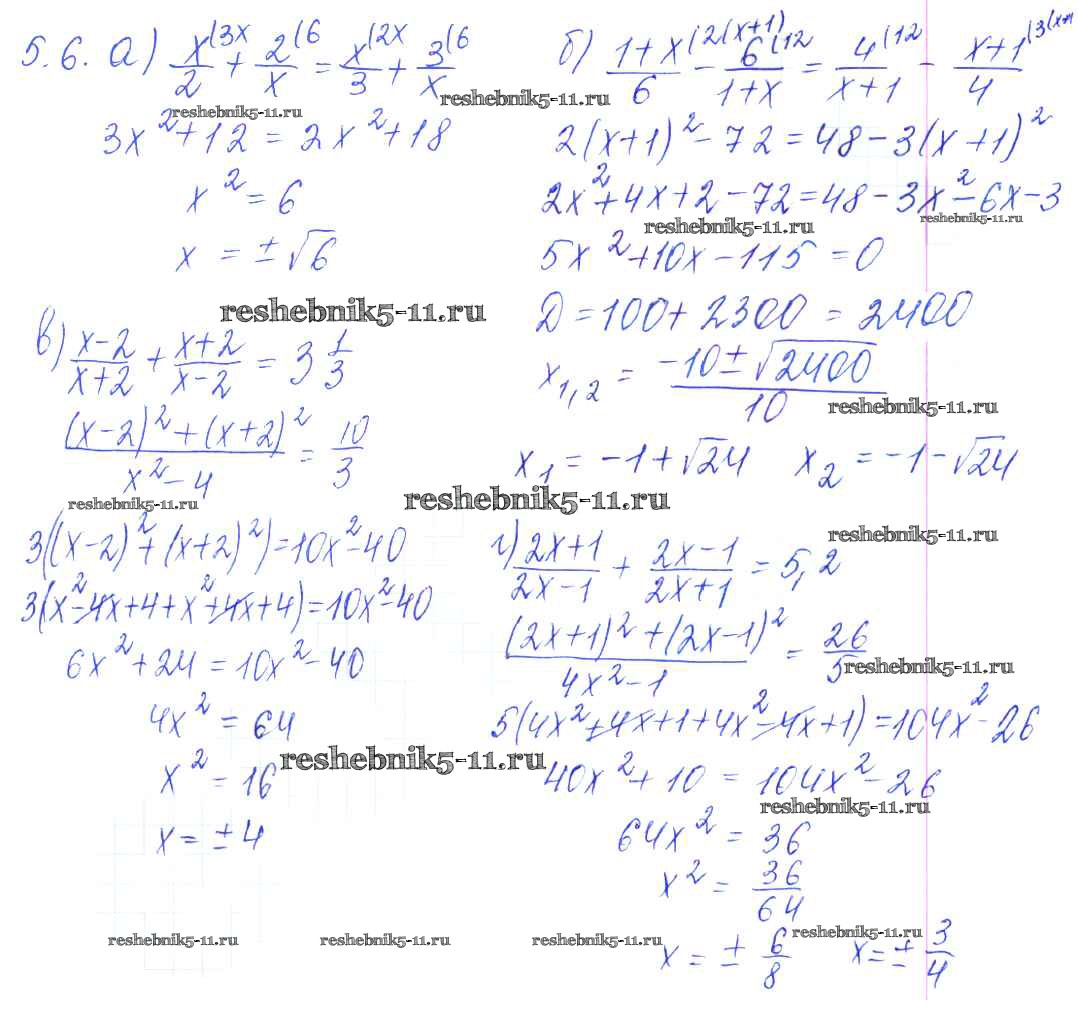 5.6. а) x^(3x/2 + 2^(6/x = x^(2x/3 + 3^(6/x
reshebnik5-11.ru
reshebnik5-11.ru
3x² + 12 = 2x² + 18
x² = 6
x = ±√6
б) 1+x^(2(x+1)/6 − 6^(12/1+x = 4^(12/x+1 − x+1^(3(x+1/4
2(x+1)² − 72 = 48 − 3(x+1)²
2x² + 4x + 2 − 72 = 48 − 3x² − 6x − 3
reshebnik5-11.ru
reshebnik5-11.ru
5x² + 10x − 115 = 0
D = 100 + 2300 = 2400
x₁,₂ = −10 ± √2400/10
reshebnik5-11.ru
x₁ = −1 + √24 x₂ = −1 − √24
reshebnik5-11.ru
в) x−2/x+2 + x+2/x−2 = 3 1/3
(x−2)² + (x+2)²/x² − 4 = 10/3
reshebnik5-11.ru
reshebnik5-11.ru
3((x−2)² + (x+2)²) = 10x² − 40
3(x² − 4x + 4 + x² + 4x + 4) = 10x² − 40
6x² + 24 = 10x² − 40
4x² = 64
x² = 16
reshebnik5-11.ru
x = ±4
reshebnik5-11.ru
г) 2x+1/2x−1 + 2x−1/2x+1 = 5,2
(2x+1)² + (2x−1)²/4x² − 1 = 26/5
reshebnik5-11.ru
5(4x² + 4x + 1 + 4x² − 4x + 1) = 104x² − 26
40x² + 10 = 104x² − 26
reshebnik5-11.ru
64x² = 36
x² = 36/64
reshebnik5-11.ru
x = ± 6/8 x = ± 3/4
reshebnik5-11.ru reshebnik5-11.ru reshebnik5-11.ru